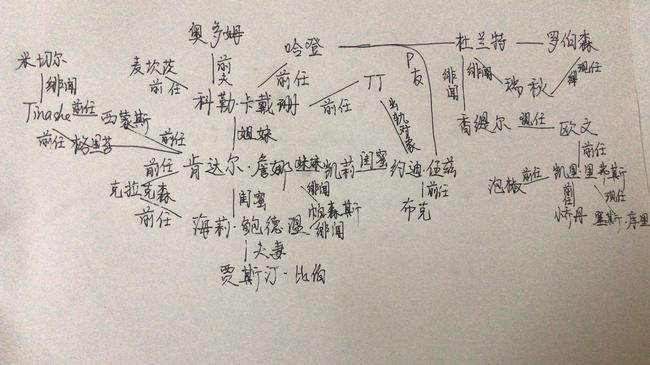 奥多姆 哈登 杜兰特 罗伯森
P友
米切尔 麦坎茨 前夫 前任 绯闻 绯闻 瑞秋 现任
绯闻 前任 科勒·卡戴珊 前任 TT
Tinashe 前任 西蒙斯 出轨对象 香缇尔 现任 欧文
前任 格里芬 前任 姐妹 前任
前任 肯达尔·詹娜 姐妹 凯莉 闺蜜 约迪·伍兹 泡椒 前任 凯里·里弗斯
克拉克森 前任 闺蜜 绯闻 帕森斯 前任 前任 现任
海莉·鲍德温 绯闻 布克 小乔丹 塞斯·库里
夫妻
贾斯汀·比伯